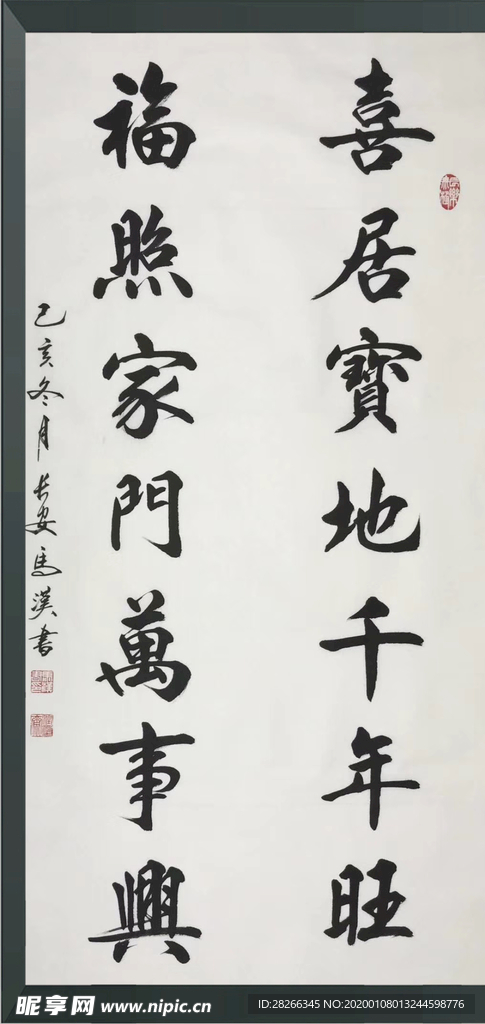 喜居寶地千年旺
福照家門萬事興
己亥冬月長安馬漢書
昵享网 www.nipic.cn
ID:28266345 NO:20200108013244598776